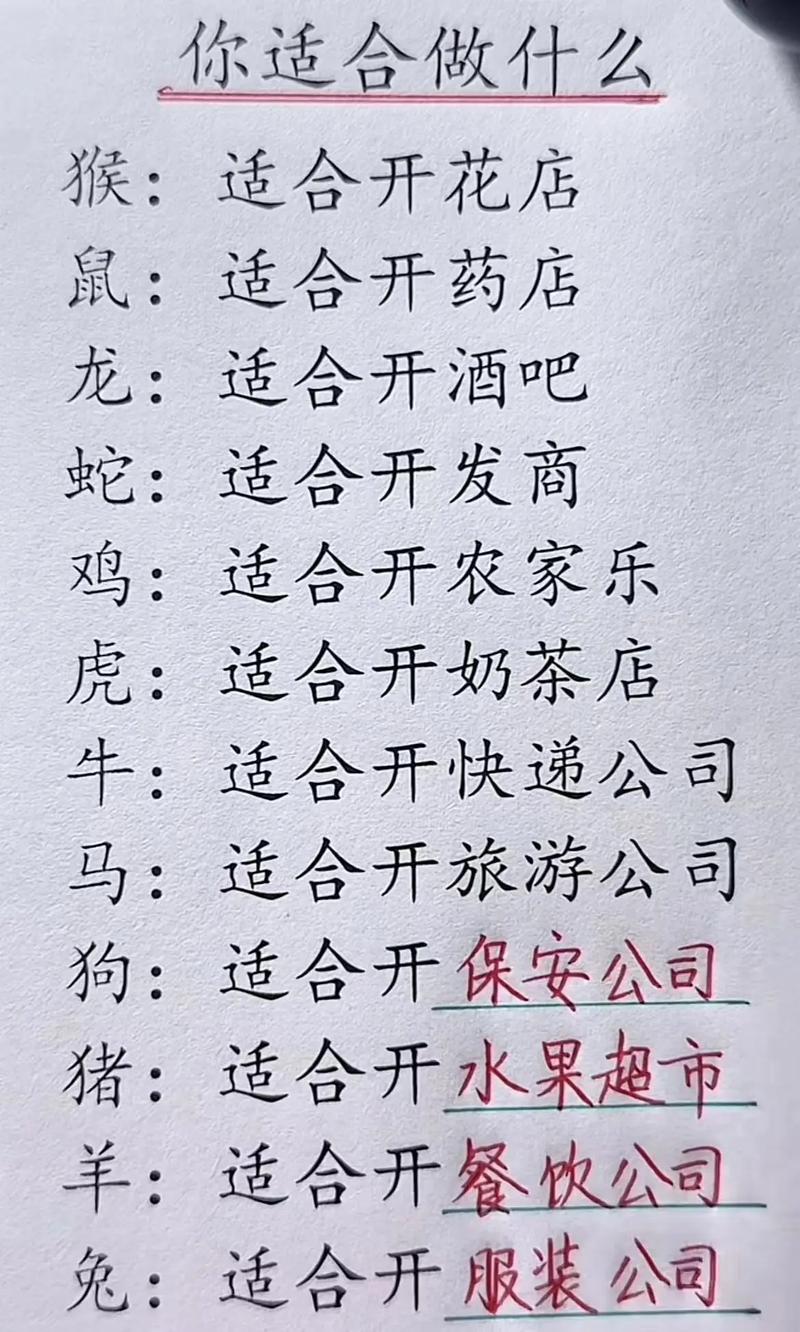 你适合做什么
猴：适合开花店
鼠：适合开药店
龙：适合开酒吧
蛇：适合开发商
鸡：适合开农家乐
虎：适合开奶茶店
牛：适合开快递公司
马：适合开旅游公司
狗：适合开保安公司
猪：适合开水果超市
羊：适合开餐饮公司
兔：适合开服装公司